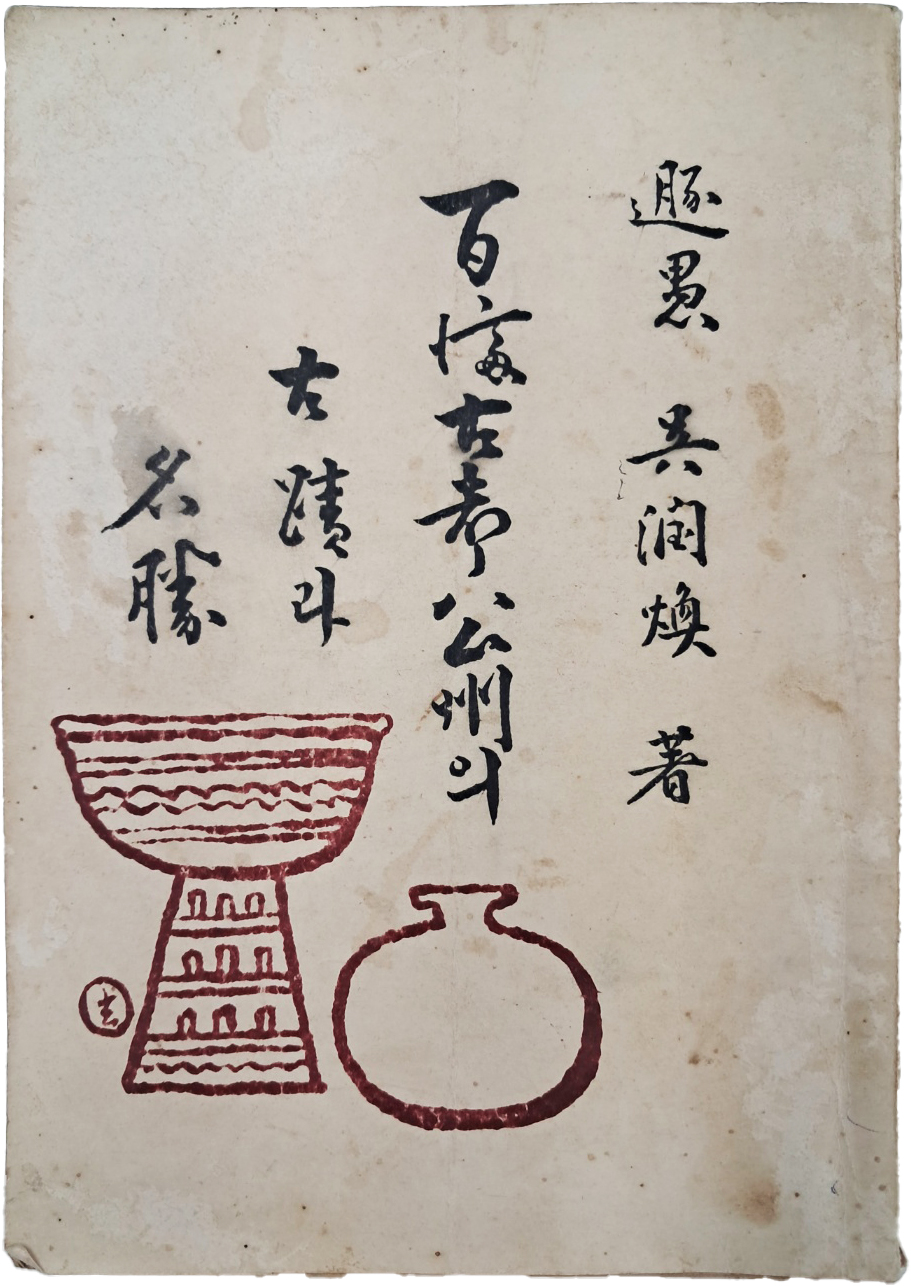 遯愚 吳潤煥 著
百濟古都公州의
古蹟과
名勝